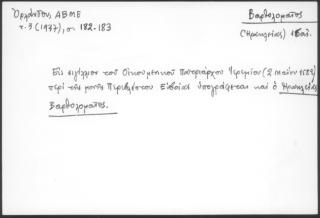 Ὀρλάνδου, ΑΒΜΕ
τ. 3 (1937), σ. 182-183
Βαρθολομαῖος
(Ἡρακλείας)
Εἰς σιγίλλιον τοῦ Οἰκουμενικοῦ Πατριάρχου Ἱερεμίου (2 Μαΐου 1583)
περὶ τῆς μονῆς Περιβλέπτου Εὐβοίας ὑπογράφεται καὶ ὁ Ἡρακλείας
Βαρθολομαῖος.